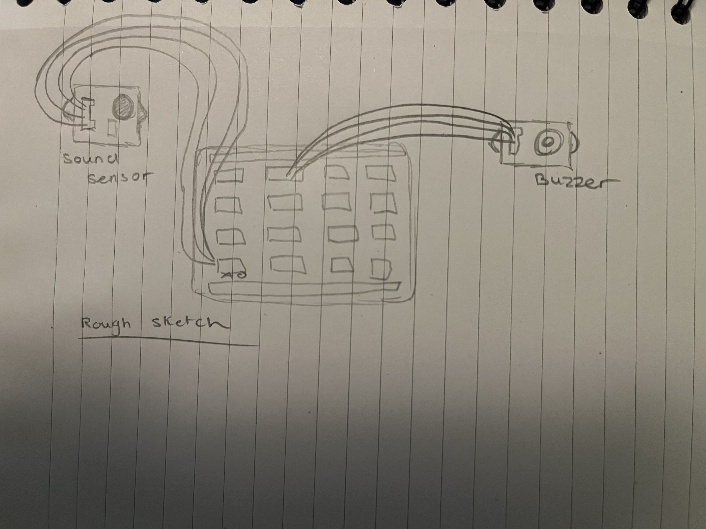 Sound
Sensor
Buzzer
A0
Rough sketch